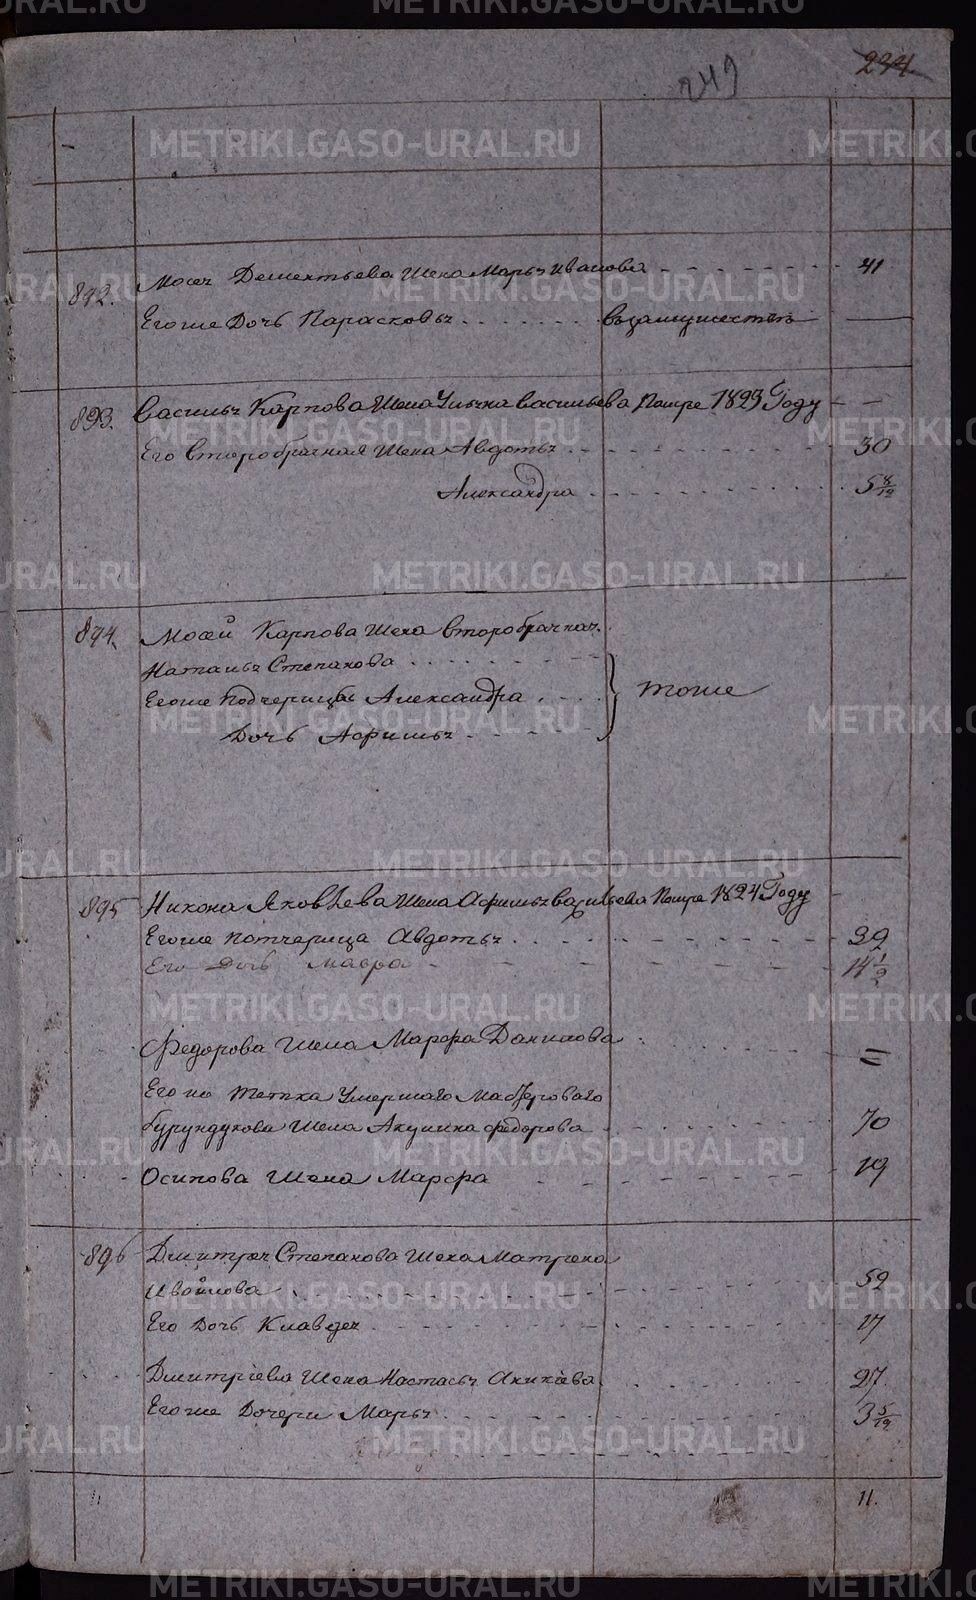 METRIKI.GASO-URAL.RU
249
234
892. Мосеи Дементьева жена Марья Иванова 41
Егоже Дочь Парасковья взамужестве —
893. Василья Карпова жена Ульяна Васильева Помре 1823 Году — —
Его второбрачная жена Авдотья 30
Александра 5 8/12
894. Мосеи Карпова жена второбрачная
Наталья Степанова
Егоже подчерицы Александра тоже
Дочь Афимья
895 Никона Яковлева жена Афимья Васильева Помре 1824 Году —
Егоже потчерица Авдотья 39
Его Дочь Мавра 14 1/2
Федорова жена Марфа Данилова =
Его же тетка Умершаго Мастероваго
Бурундукова жена Акулина Федорова 70
Осипова жена Марфа 19
896 Дмитрея Степанова жена Матрена
Ивойлова 59
Его Дочь Клавдея 17
Дмитриева жена Настасья Акинева 27
Егоже Дочери Марья 3 5/12
11 11.